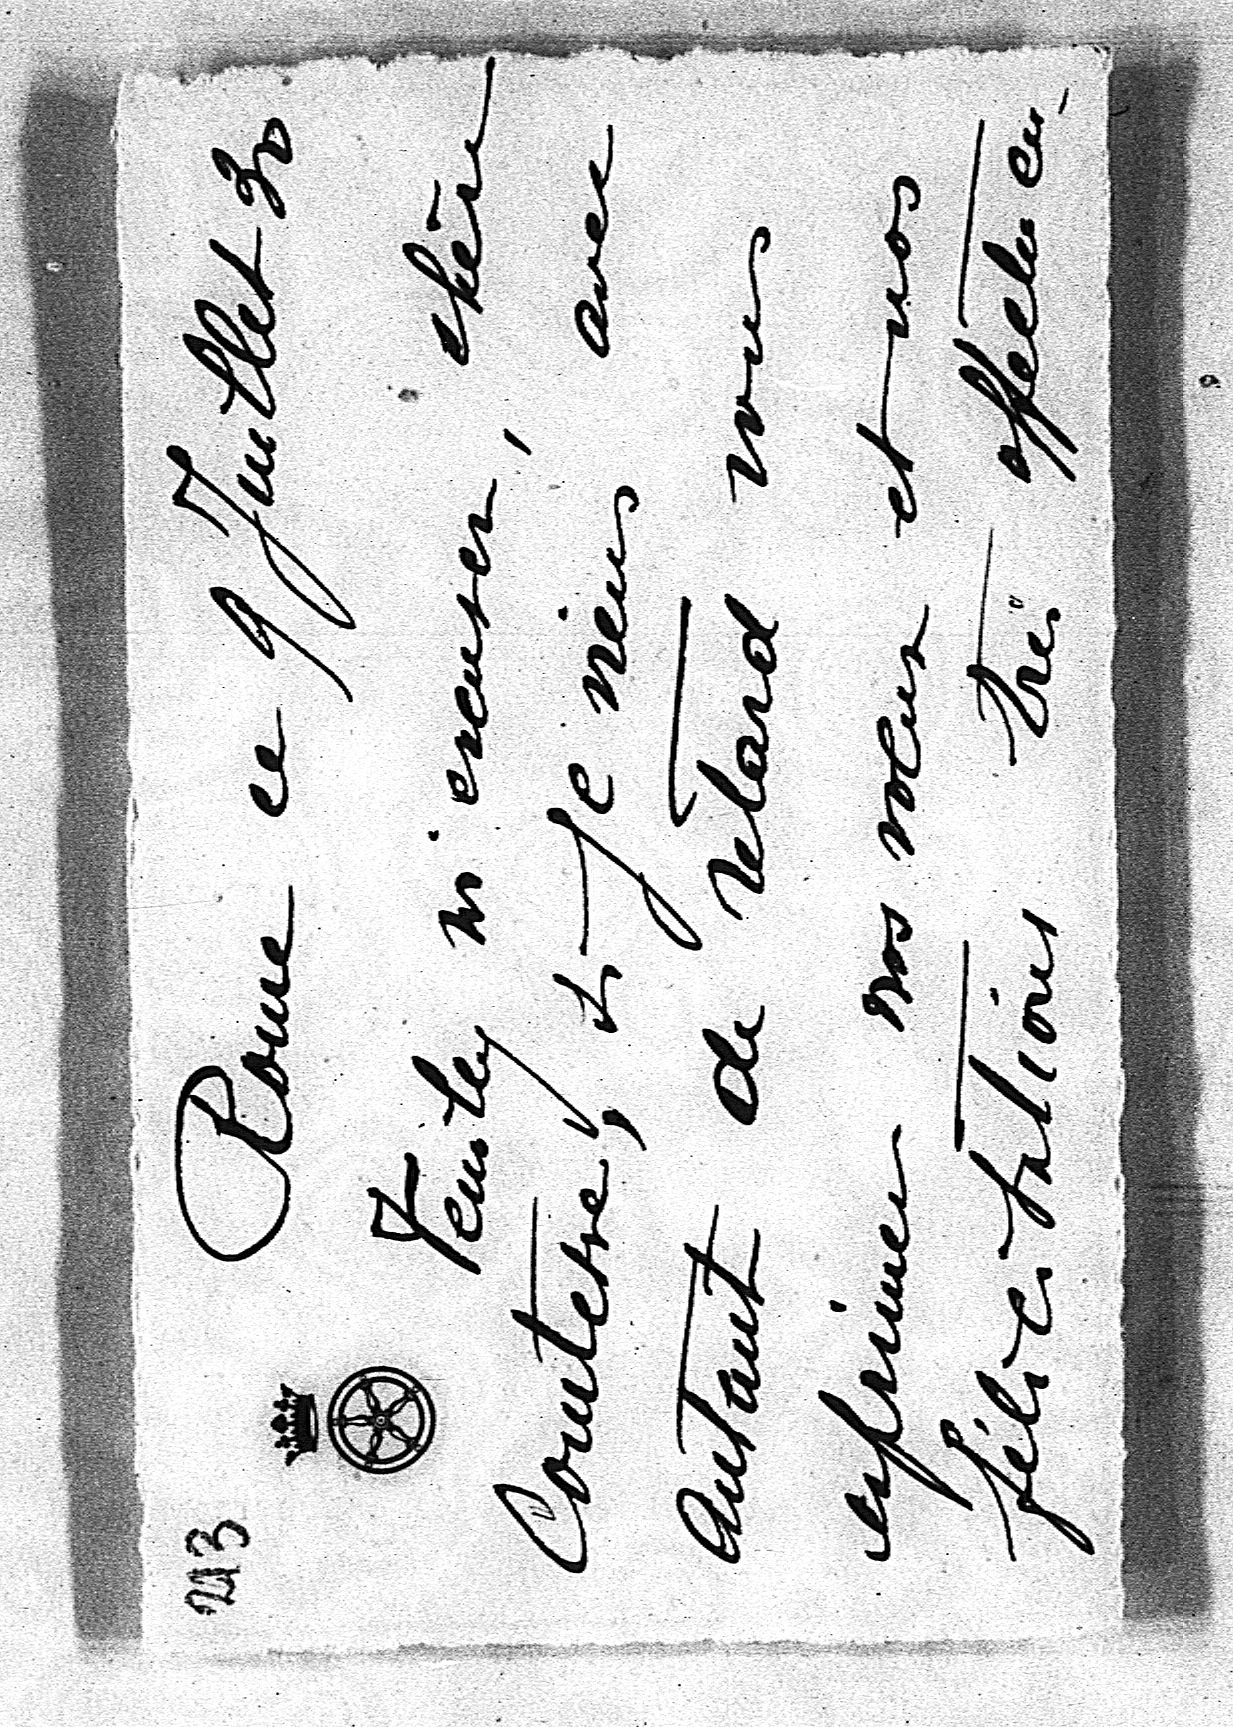 213
Rome ce 9 Juillet 30
Veuillez m'excuser, chère
Comtesse, si je viens avec
autant de retard vous
exprimer nos voeux et nos
félicitations très affectueu-